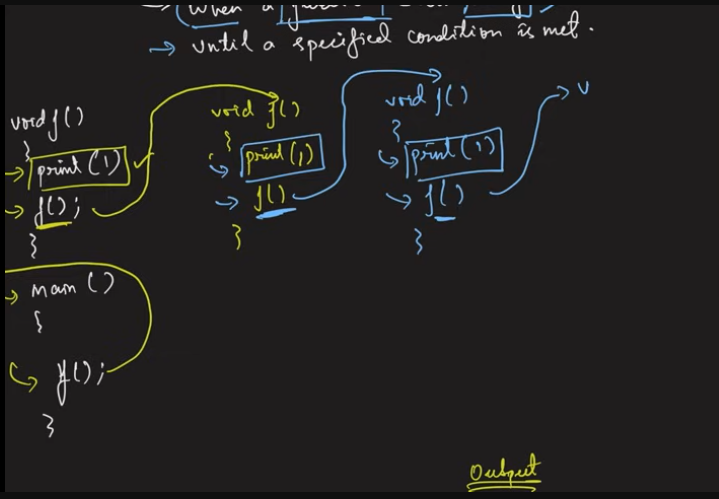 → when a
→ until a specified condition is met.
void f()
{
→ print(1)
→ f();
}
void f()
{
→ print(1)
→ f()
}
void f()
{
→ print(1)
→ f()
}
→ v
→ main()
{
→ f();
}
Output